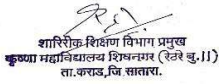 शारिरीक शिक्षण विभाग प्रमुख
कृष्णा महाविद्यालय शिवनगर (रेठरे बु.))
ता.कराड,जि.सातारा.